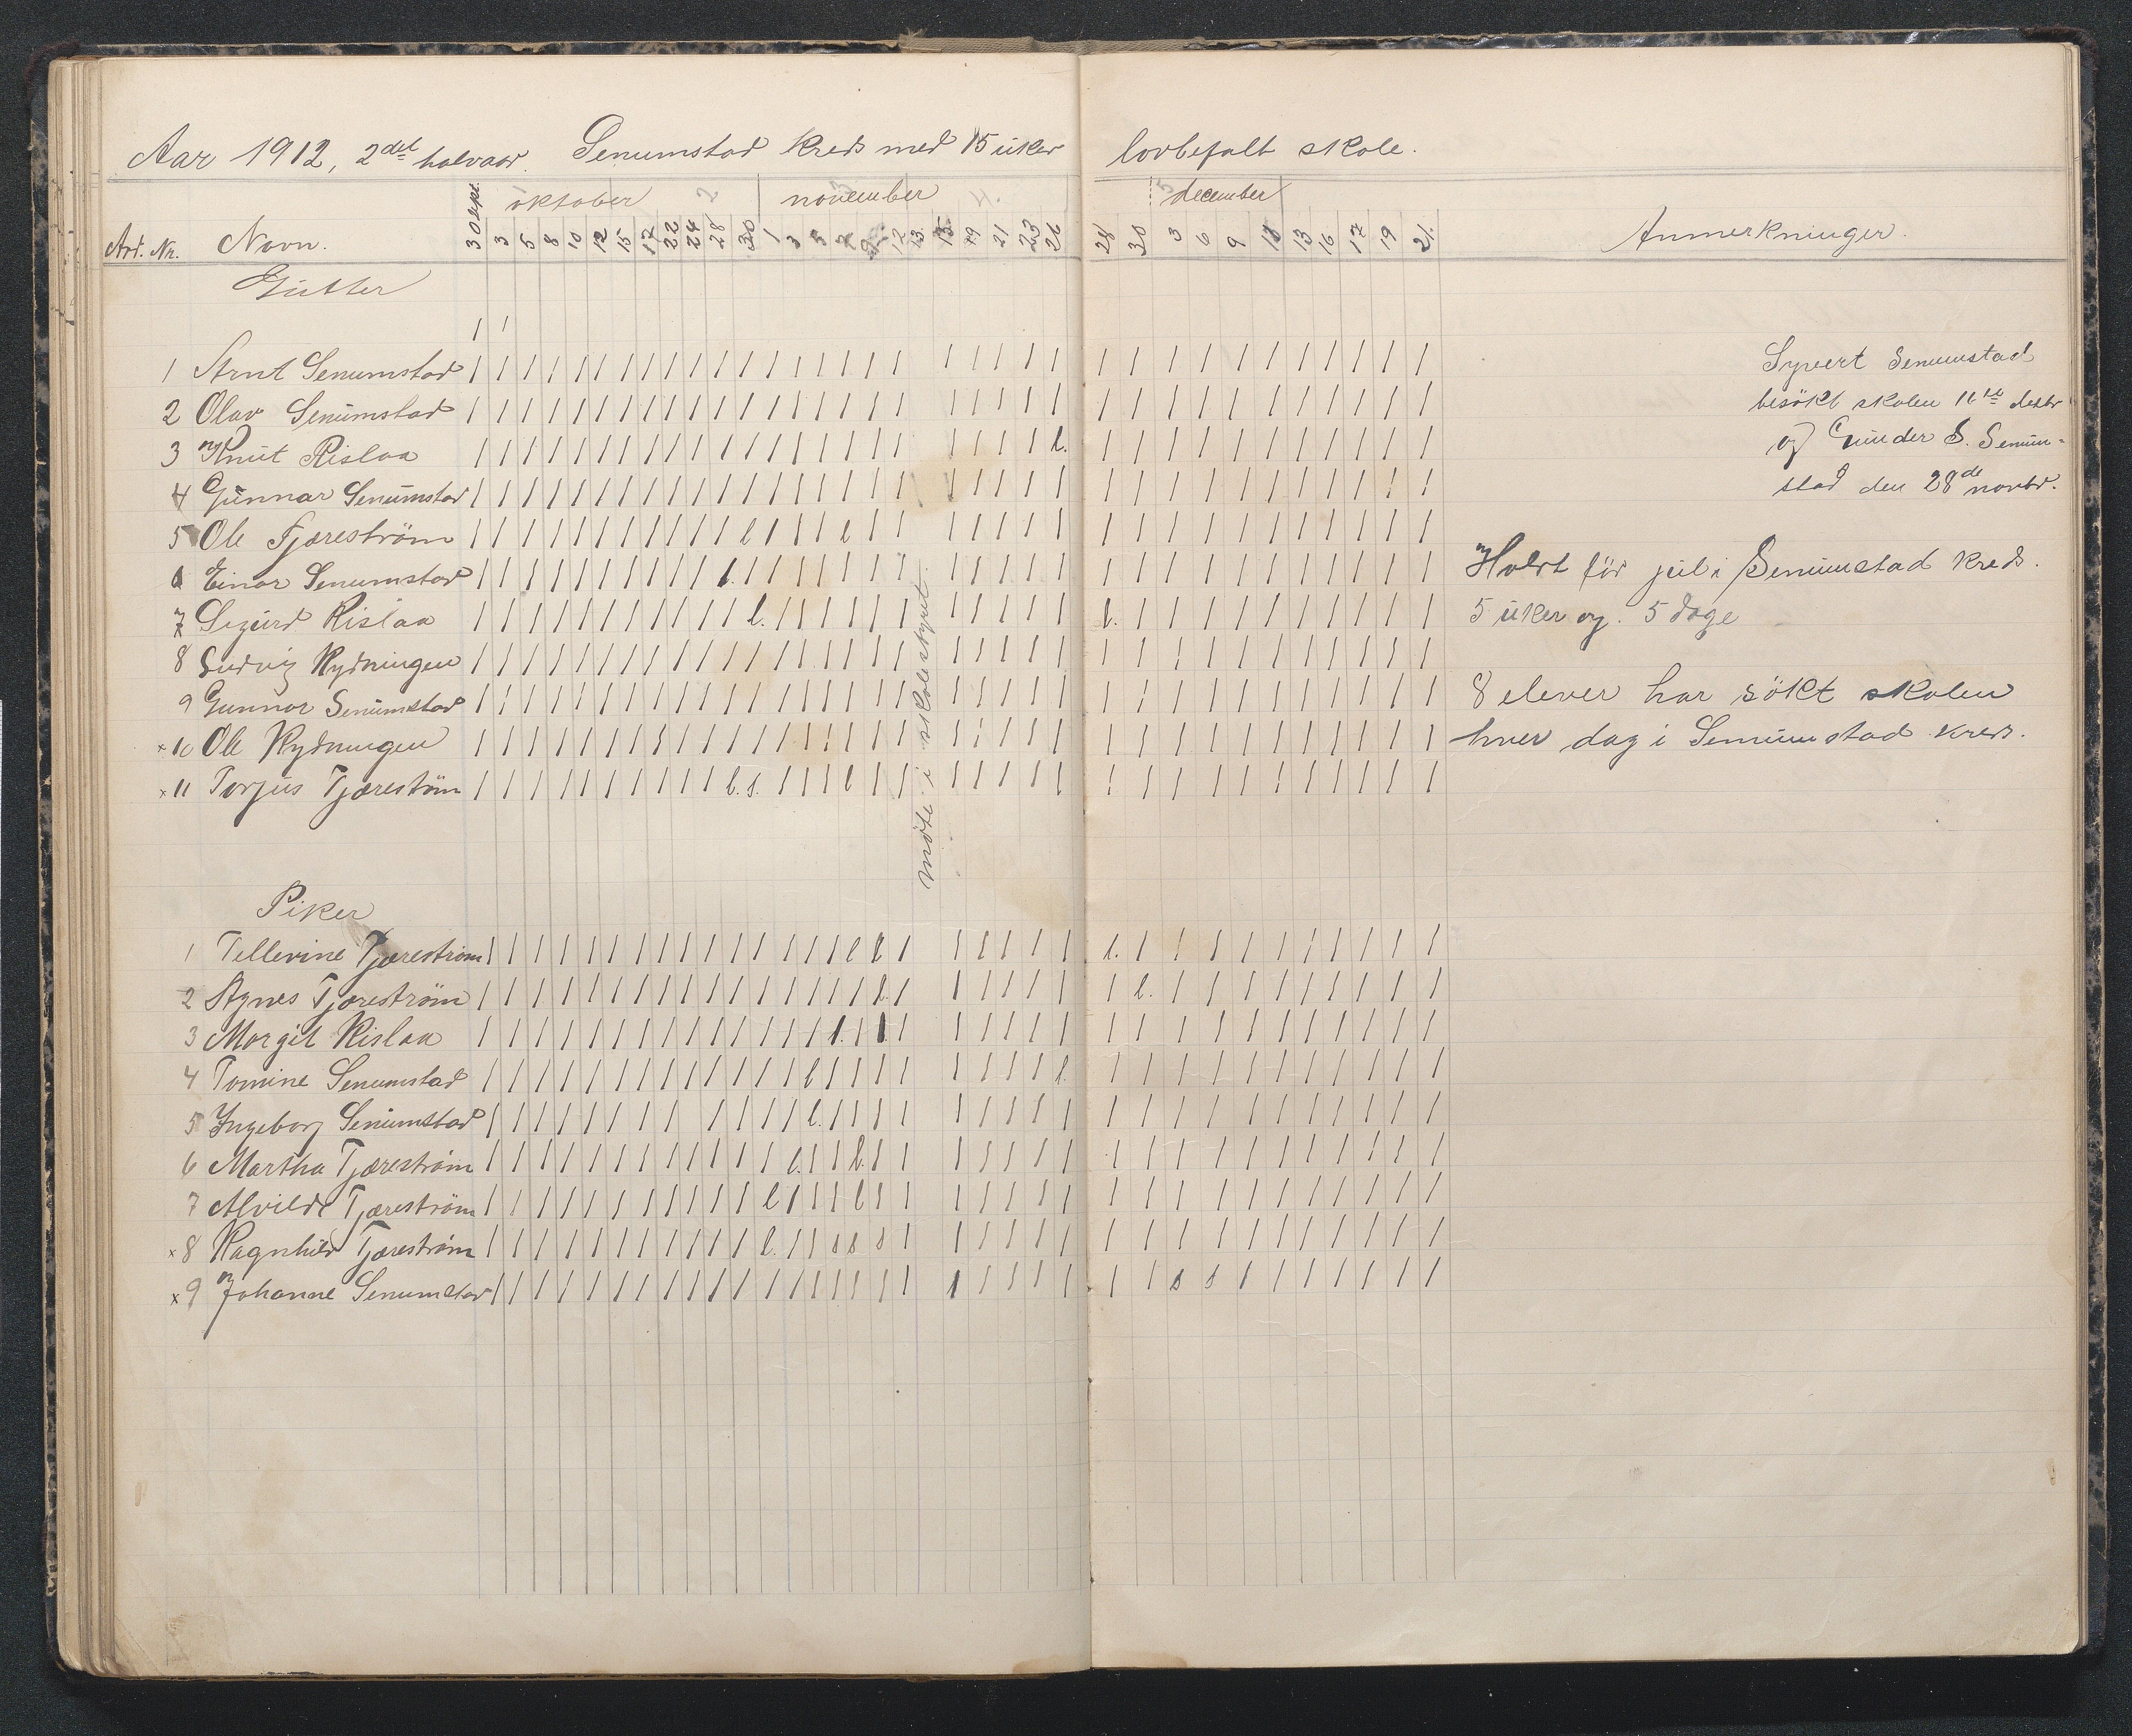 Aar 1912, 2det halvaar. Senumstad kreds med 15 uker lovbefalt skole.
30 sept. oktober november december
Art. Nr. Navn. 3 5 8 10 12 15 17 22 24 28 30 1 3 5 7 9 12 13 15 19 21 23 26 28 30 3 6 9 11 13 16 17 19 21. Anmerkninger.
Gutter
1 Arnt Senumstad
2 Olav Senumstad
3 Knut Rislaa
4 Gunnar Senumstad
5 Ole Tjæreström
6 Einar Senumstad
7 Sigurd Rislaa
8 Ludvig Rydningen
9 Gunnar Senumstad
x 10 Ole Rydningen
x 11 Torjus Tjæreström
möte i skolestyret
Piker
1 Tellevine Tjæreström
2 Agnes Tjæreström
3 Margit Rislaa
4 Tomine Senumstad
5 Ingeborg Senumstad
6 Martha Tjæreström
7 Alvilde Tjæreström
x 8 Ragnhild Tjæreström
x 9 Johanne Senumstad
Syvert Senumstad
besökt skolen 16de decbr
og Gunder S. Senum-
stad den 28de novbr.
Holdt för jul i Senumstad kreds.
5 uker og 5 dage
8 elever har sökt skolen
hver dag i Senumstad kreds.